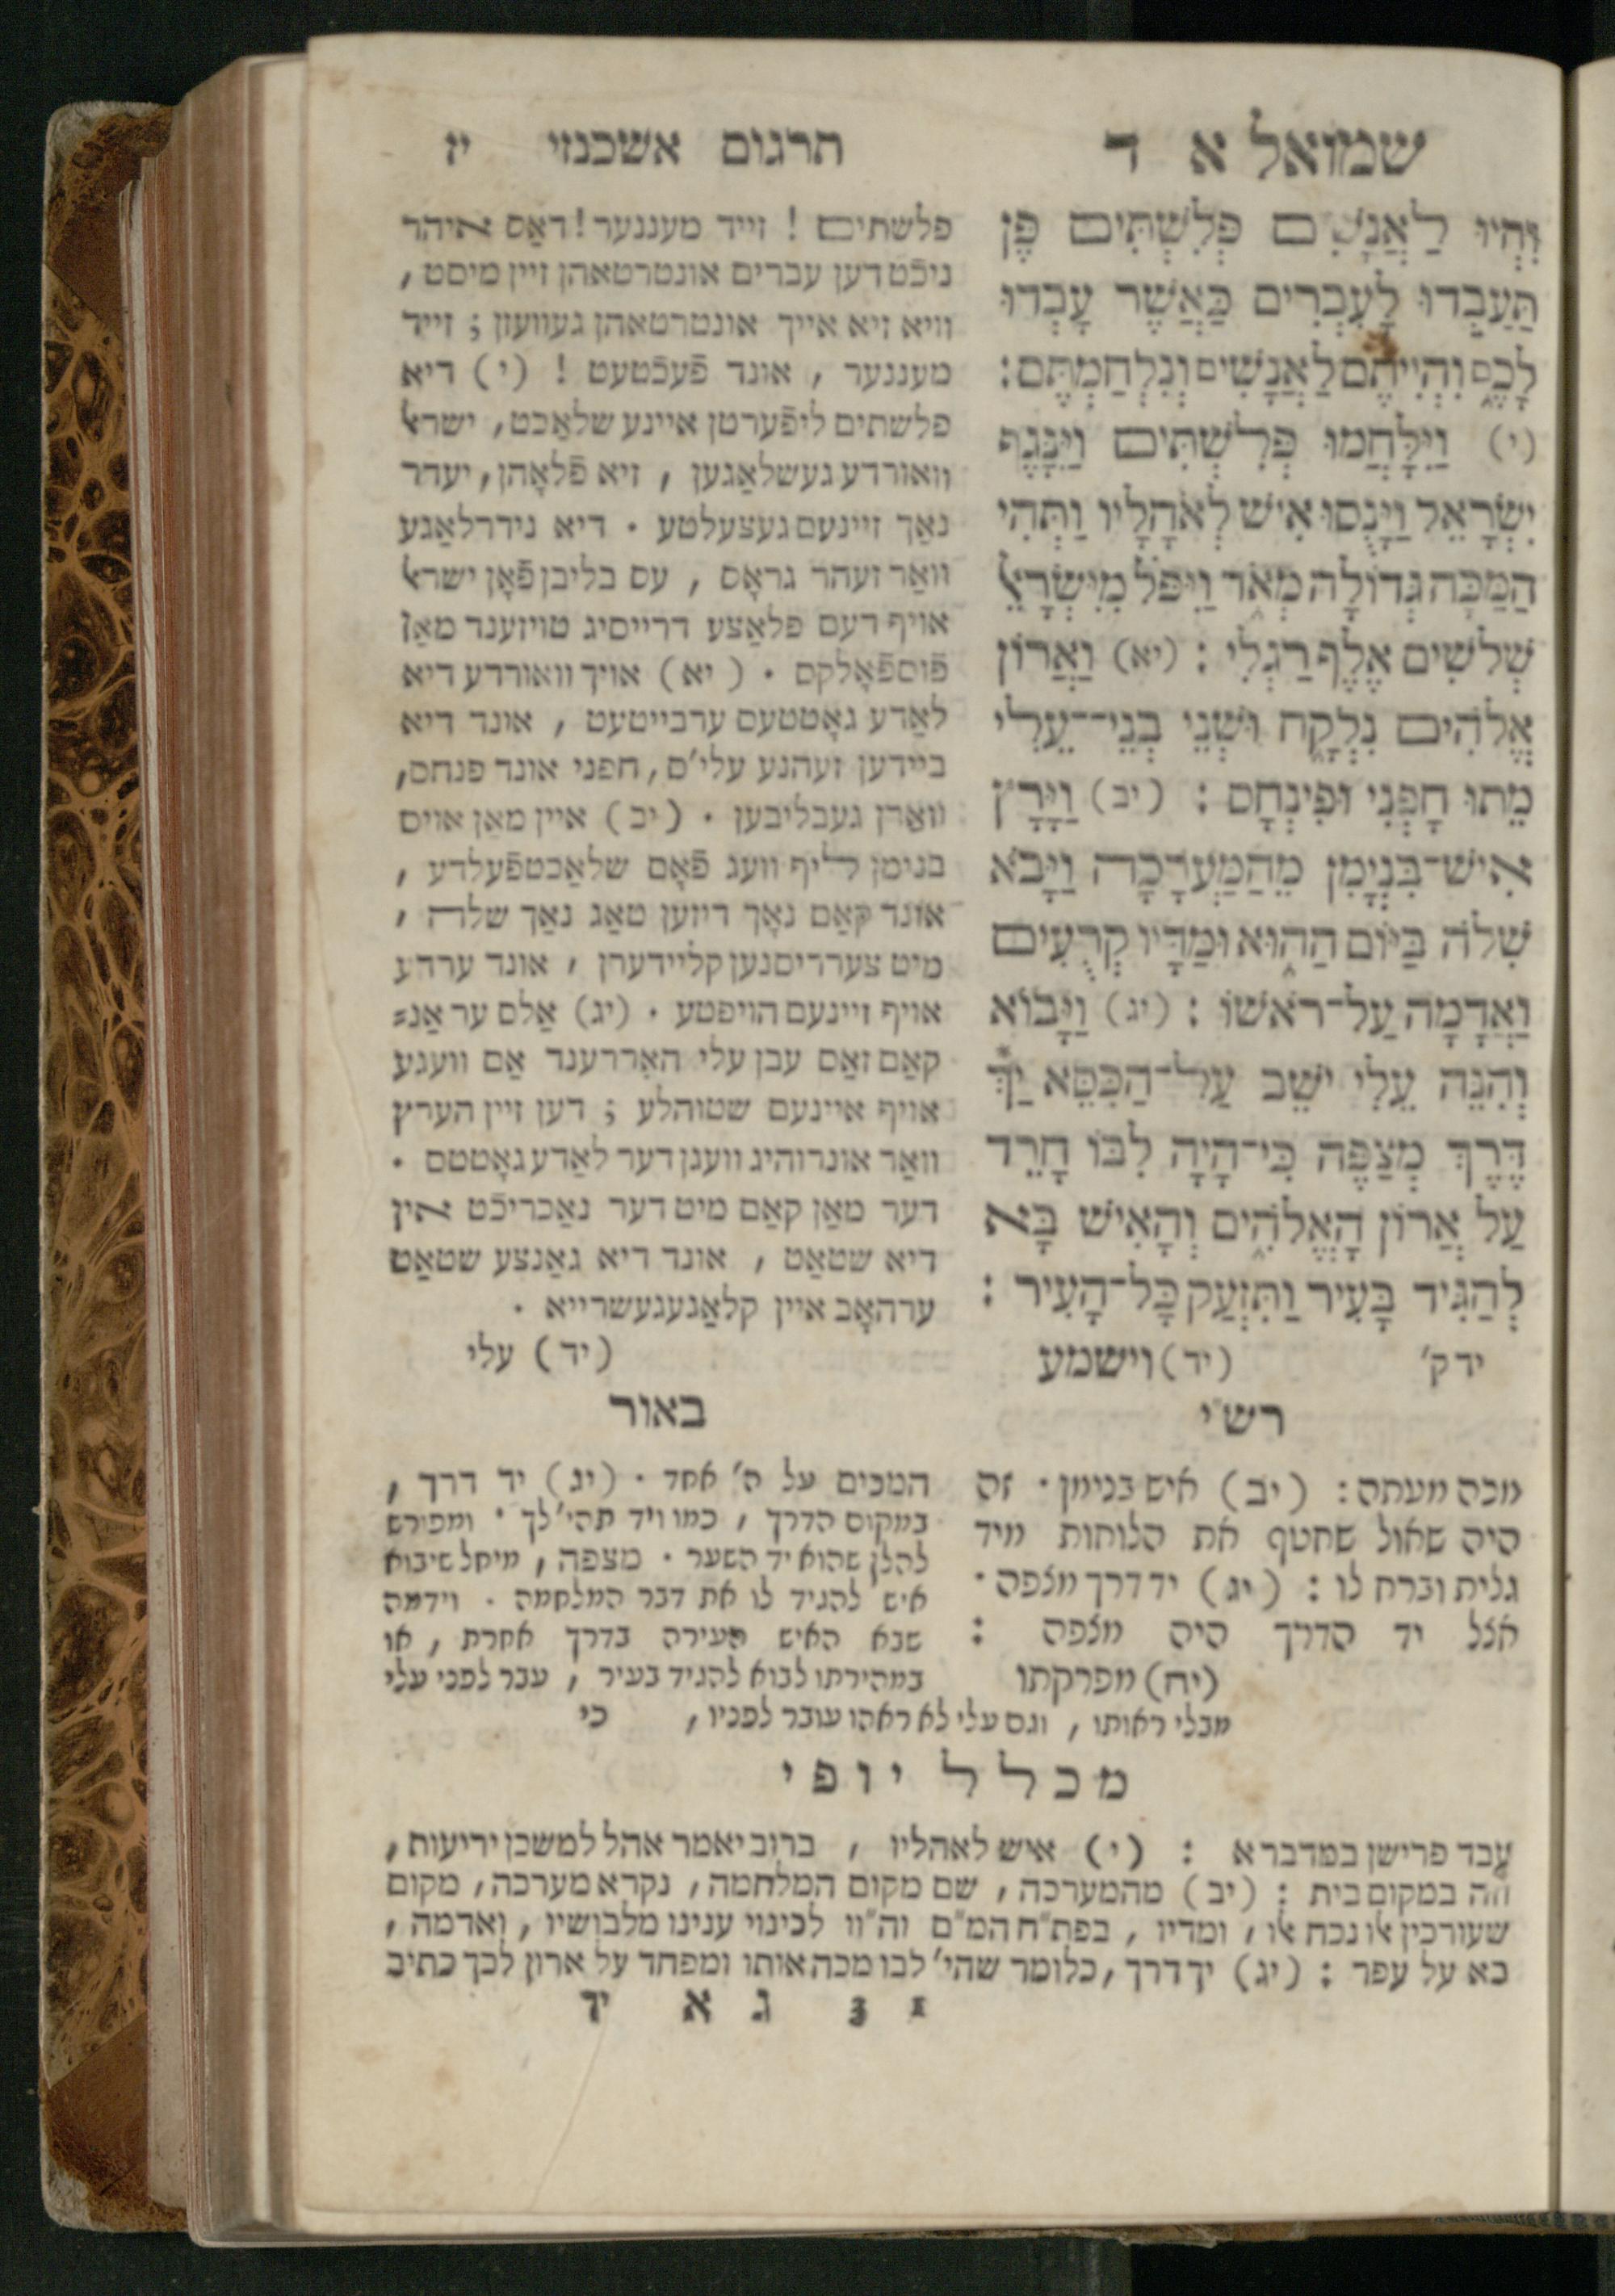 שמואל א ד
תרגום אשכנזי יז
וִהְיוּ לַאֲנָשִׁים פְּלִשְׁתִּים פֶּן
תַּעַבְדוּ לָעִבְרִים כַּאֲשֶׁר עָבְדוּ
לָכֶם וִהְיִיתֶם לַאֲנָשִׁים וְנִלְחַמְתֶּם:
(י) וַיִּלָּחֲמוּ פְלִשְׁתִּים וַיִּנָּגֶף
יִשְׂרָאֵל וַיָּנֻסוּ אִישׁ לְאֹהָלָיו וַתְּהִי
הַמַּכָּה גְּדוֹלָה מְאֹד וַיִּפֹּל מִיִּשְׂרָאֵל
שְׁלשִׁים אֶלֶף רַגְלִי : (יא) וַאֲרוֹן
אֱלֹהִים נִלְקָח וּשְׁנֵי בְנֵי־עֵלִי
מֵתוּ חָפְנִי וּפִינְחָס : (יב) וַיָּרָץ
אִישׁ־בִּנְיָמִן מֵהַמַּעֲרָכָה וַיָּבֹא
שִׁלֹה בַּיּוֹם הַהוּא וּמַדָּיו קְרֻעִים
וַאֲדָמָה עַל־רֹאשׁוֹ : (יג) וַיָּבוֹא
וְהִנֵּה עֵלִי ישֵׁב עַל־הַכִּסֵּא יַךְ
דֶּרֶךְ מְצַפֶּה כִּי־הָיָה לִבּוֹ חָרֵד
עַל אֲרוֹן הָאֱלֹהִים וְהָאִישׁ בָּא
לְהַגִּיד בָּעִיר וַתִּזְעַק כָּל־הָעִיר :
יד ק' (יד) וישמע
פלשתים ! זייד מעננער ! דאַס איהר
ניכֿט דען עברים אונטרטאהן זיין מיסט ,
וויא זיא אייך אונטרטאהן געוועזן ; זייד
מעננער , אונד פֿעכֿטעט ! (י) דיא
פלשתים ליפֿערטן איינע שלאַכט, ישראל
וואורדע געשלאַגען , זיא פֿלאָהן, יעדר
נאַך זיינעם געצעלטע . דיא נידרלאַגע
וואַר זעהר גראָס , עס בליבן פֿאָן ישראל
אויף דעם פלאַצע דרייסיג טויזענד מאַן
פֿוספֿאָלקס . (יא) אויך וואורדע דיא
לאַדע גאָטטעס ערבייטעט , אונד דיא
ביידען זעהנע עלי'ס, חפני אונד פנחס,
וואַרן געבליבען . (יב) איין מאַן אויס
בנימן ליף וועג פֿאָם שלאַכטפֿעלדע ,
אונד קאַם נאָך דיזען טאַג נאַך שלה ,
מיט צערריסנען קליידערן , אונד ערדע
אויף זיינעם הויפטע . (יג) אַלס ער אַנ=
קאַם זאַס עבן עלי האַררענד אַם וועגע
אויף איינעם שטוהלע ; דען זיין הערץ
וואַר אונרוהיג וועגן דער לאַדע גאָטטס .
דער מאַן קאַם מיט דער נאַכריכֿט אין
דיא שטאַט , אונד דיא גאַנצע שטאַט
ערהאָב איין קלאַגעגעשרייא .
(יד) עלי
רש"י
מכה מעתה : (יב) איש בנימן . זה
היה שאול שחטף את הלוחות מיד
גלית וברח לו : (יג) יד דרך מצפה .
אצל יד הדרך היה מצפה :
(יח) מפרקתו
באור
המכים על ה' אחד . (יג) יד דרך ,
במקום הדרך , כמו ויד תהי' לך . ומפורש
להלן שהוא יד השער . מצפה , מיחל שיבוא
איש להגיד לו את דבר המלחמה . וידמה
שבא האיש העירה בדרך אחרת , או
במהירתו לבוא להגיד בעיר , עבר לפני עלי
מבלי ראותו , וגם עלי לא ראהו עובר לפניו , כי
מכלל יופי
עבד פרישן במדבר א : (י) איש לאהליו , ברוב יאמר אהל למשכן יריעות ,
וזה במקום בית : (יב) מהמערכה , שם מקום המלחמה , נקרא מערכה , מקום
שעורכין זו נכח זו , ומדיו , בפת"ח המ"ם וה"וו לכינוי ענינו מלבושיו , ואדמה ,
בא על עפר : (יג) יך דרך , כלומר שהי' לבו מכה אותו ומפחד על ארון לכך כתיב